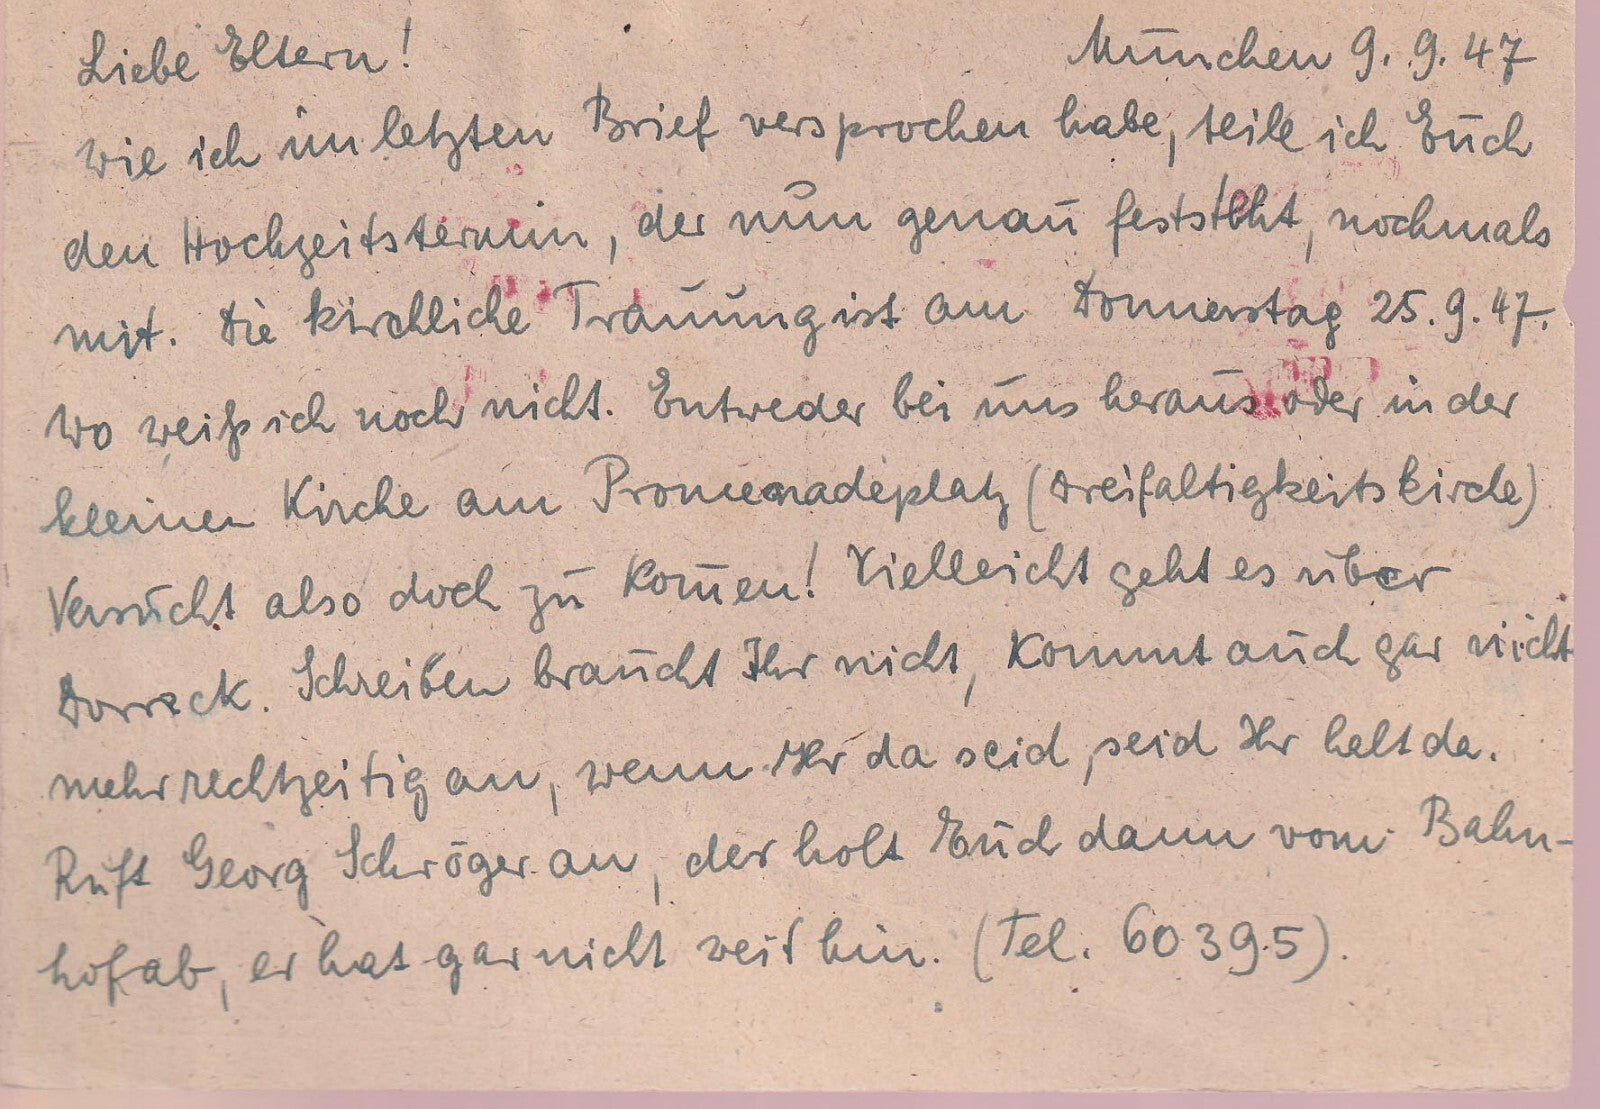 Liebe Eltern! München 9. 9. 47
Wie ich im letzten Brief versprochen habe, teile ich Euch
den Hochzeitstermin, der nun genau feststeht, nochmals
mit. Die kirchliche Trauung ist am Donnerstag 25. 9. 47.
Wo weiß ich noch nicht. Entweder bei uns heraus oder in der
kleinen Kirche am Promenadeplatz (Dreifaltigkeitskirche)
Versucht also doch zu kom̄en! Vielleicht geht es über
Schreiben braucht Ihr nicht, kommt auch gar nicht
mehr rechtzeitig an, wenn Ihr da seid, seid Ihr halt da.
Ruft Georg Schröger an, der holt Euch dann vom Bahn-
hof ab, er hat gar nicht weit hin. (Tel. 60395).